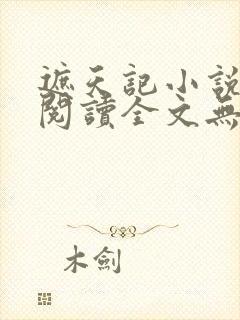 遮天記小說
閱讀全文無
木劍